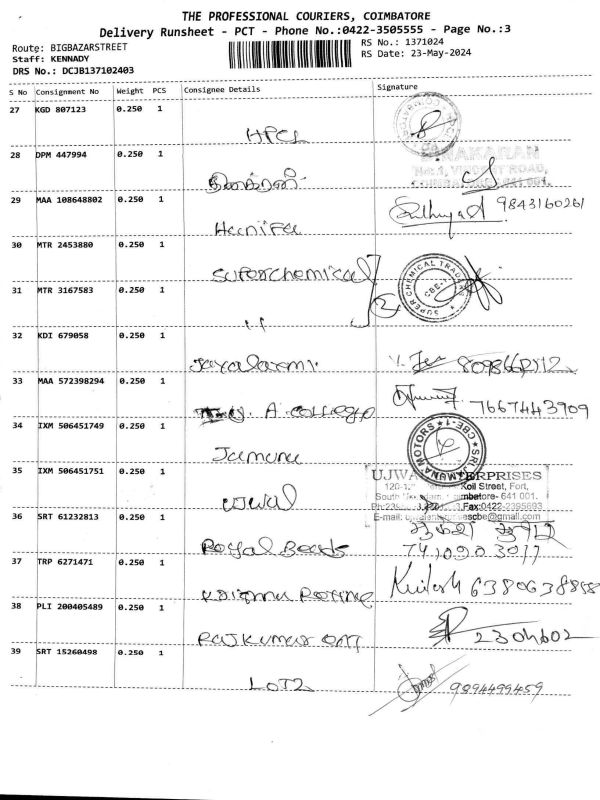 THE PROFESSIONAL COURIERS, COIMBATORE
Delivery Runsheet - PCT - Phone No.:0422-3505555 - Page No.:3
Route: BIGBAZARSTREET
RS No.: 1371024
Staff: KENNADY
RS Date: 23-May-2024
DRS No.: DCJB137102403
S No Consignment No Weight PCS Consignee Details Signature
27 KGD 807123 0.250 1
HPCL
28 DPM 447994 0.250 1
தினகரன்
DINAKARAN
COIMBATORE - 641 001.
29 MAA 108648802 0.250 1
Hanifa
9843160261
30 MTR 2453880 0.250 1
Superchemical
SUPER CHEMICAL TRADERS
CBE-1
31 MTR 3167583 0.250 1
32 KDI 679058 0.250 1
Jayalaxmi
33 MAA 572398294 0.250 1
A. college
7667443909
34 IXM 506451749 0.250 1
Jamuna
SRI JAMUNA MOTORS
CBE-1
35 IXM 506451751 0.250 1
UJWAL
UJWAL ENTERPRISES
Koil Street, Fort,
South Coimbatore- 641 001.
Fax:0422-2395693
E-mail: ujwalenterprisescbe@gmail.com
36 SRT 61232813 0.250 1
Royal Beads
37 TRP 6271471 0.250 1
6380638858
38 PLI 200405489 0.250 1
Rajkumar
2304602
39 SRT 15260498 0.250 1
LOTZ
9894499459